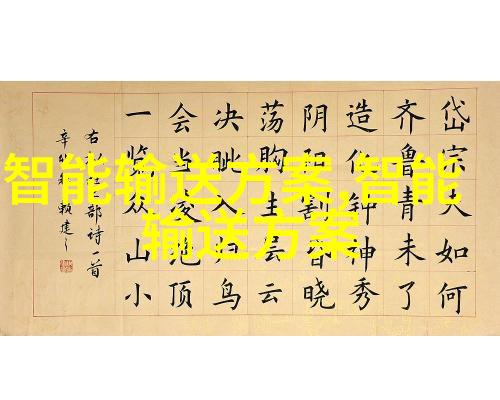 智能输送方案,智能
输送方案
岱宗夫如何
齐鲁青未了
造化钟神秀
阴阳割昏晓
荡胸生层云
决眦入归鸟
会当凌绝顶
一览众山小
右 部诗一首
辛 赖建